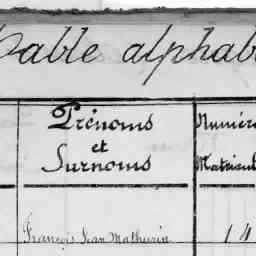 Table alphab
Prénoms
et
Surnoms
Numéro
Matricul
François Jean Mathurin
14